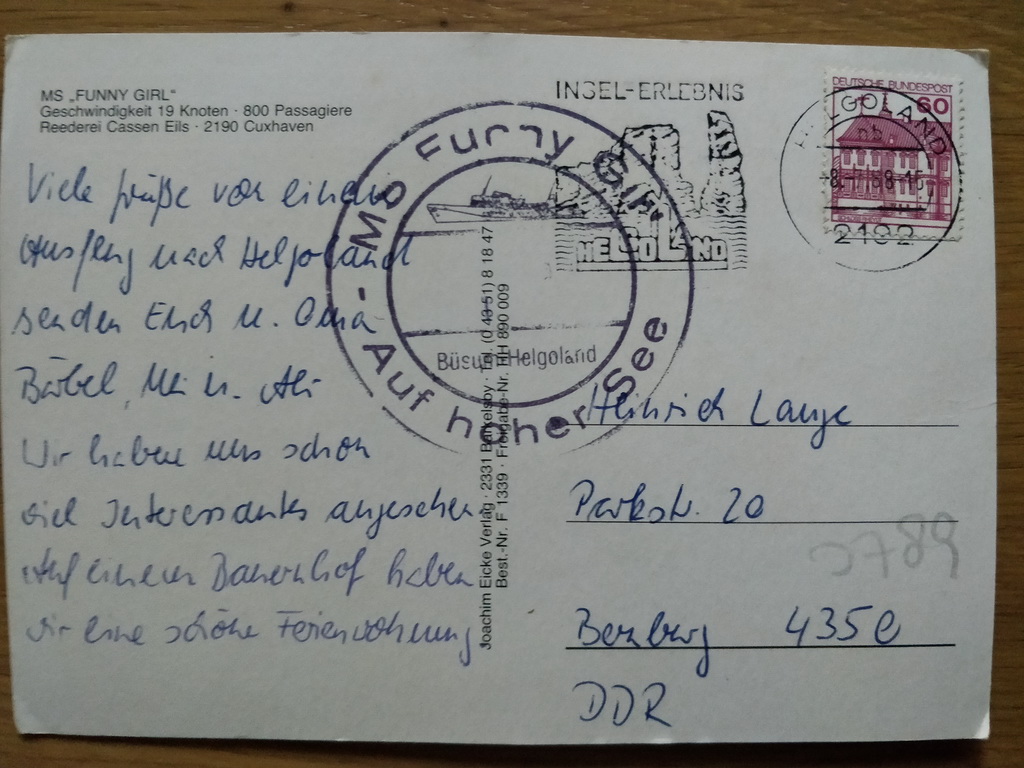 MS „FUNNY GIRL“
Geschwindigkeit 19 Knoten · 800 Passagiere
Reederei Cassen Eils · 2190 Cuxhaven
Viele Grüße von einem
Ausflug nach Helgoland
senden Erich u. Oma
Bärbel, u.
Wir haben uns schon
viel Interessantes angesehen
Auf einem Bauernhof haben
wir eine schöne Ferienwohnung
Funny Girl
Auf hoher See
Büsum-Helgoland
INSEL-ERLEBNIS
HELGOLAND
DEUTSCHE BUNDESPOST
60
HELGOLAND
2192
Joachim Eicke Verlag · 2331 · Tel. (0 43 51) 8 18 47
Best.-Nr. F 1339 · Freigabe-Nr. HH 890 009
Heinrich Lange
Parkstr. 20
Bernburg 4350
DDR